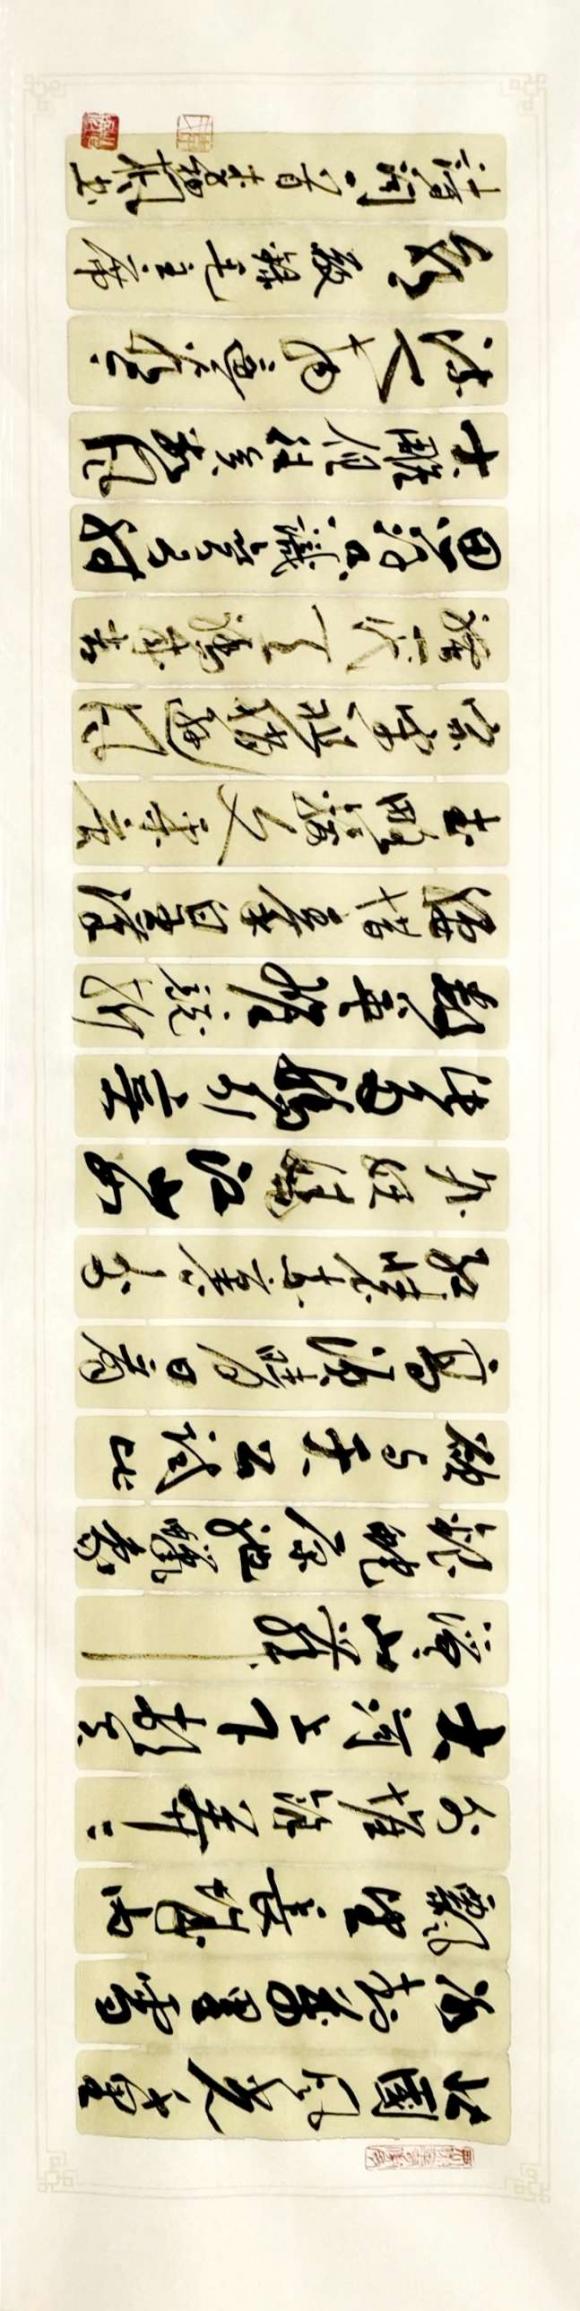 北國風光千里
冰封萬里雪
飄望長城內
外惟餘莽〻
大河上下頓失
滔山舞
銀蛇原馳蠟象
欲與天公試比
高須晴日看
紅裝素裹分
外妖嬈江山如
此多嬌引無
數英雄競折
腰惜秦皇漢
武略輸文采唐
宗宋祖稍遜風
騷一代天驕成吉
思汗只識彎弓射
大雕俱往矣數風
流人物還看今
朝敬錄毛主席
詩詞一首